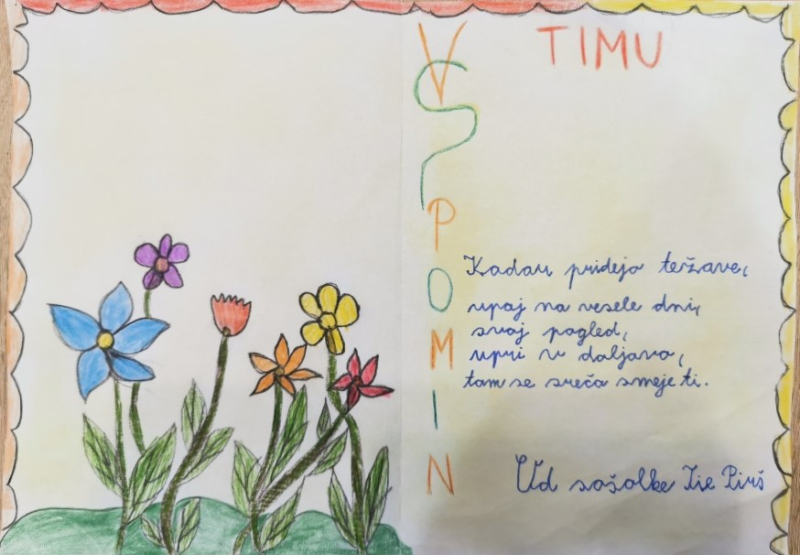 V SPOMIN
TIMU
Kadar pridejo težave,
upaj na vesele dni,
svoj pogled,
upri v daljavo,
tam se sreča smeje ti.
Od sošolke Pirš